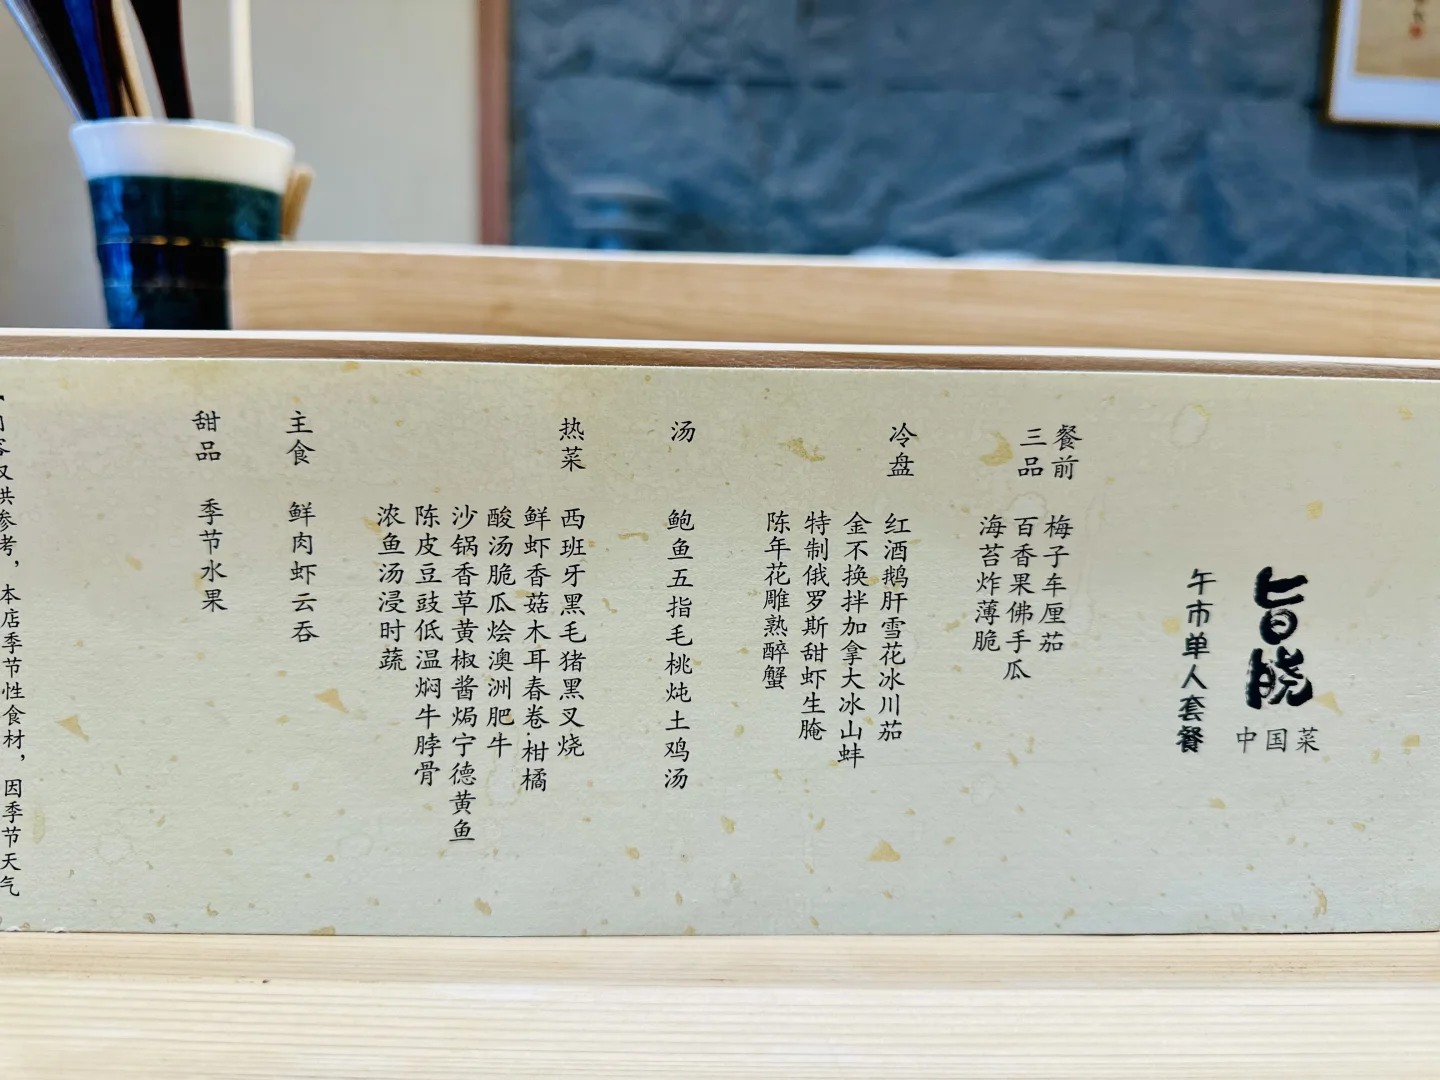 旨晓
中国菜
午市单人套餐
餐前
三品
梅子车厘茄
百香果佛手瓜
海苔炸薄脆
冷盘
红酒鹅肝雪花冰川茄
金不换拌加拿大冰山蚌
特制俄罗斯甜虾生腌
陈年花雕熟醉蟹
汤
鲍鱼五指毛桃炖土鸡汤
热菜
西班牙黑毛猪黑叉烧
鲜虾香菇木耳春卷·柑橘
酸汤脆瓜烩澳洲肥牛
沙锅香草黄椒酱焗宁德黄鱼
陈皮豆豉低温焖牛脖骨
浓鱼汤浸时蔬
主食
鲜肉虾云吞
甜品
季节水果
内容仅供参考，本店季节性食材，因季节天气